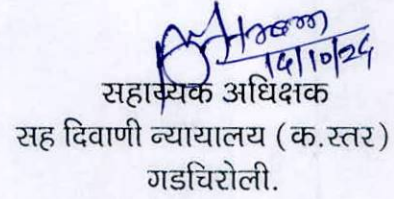 सहाय्यक अधिक्षक
सह दिवाणी न्यायालय (क.स्तर)
गडचिरोली.